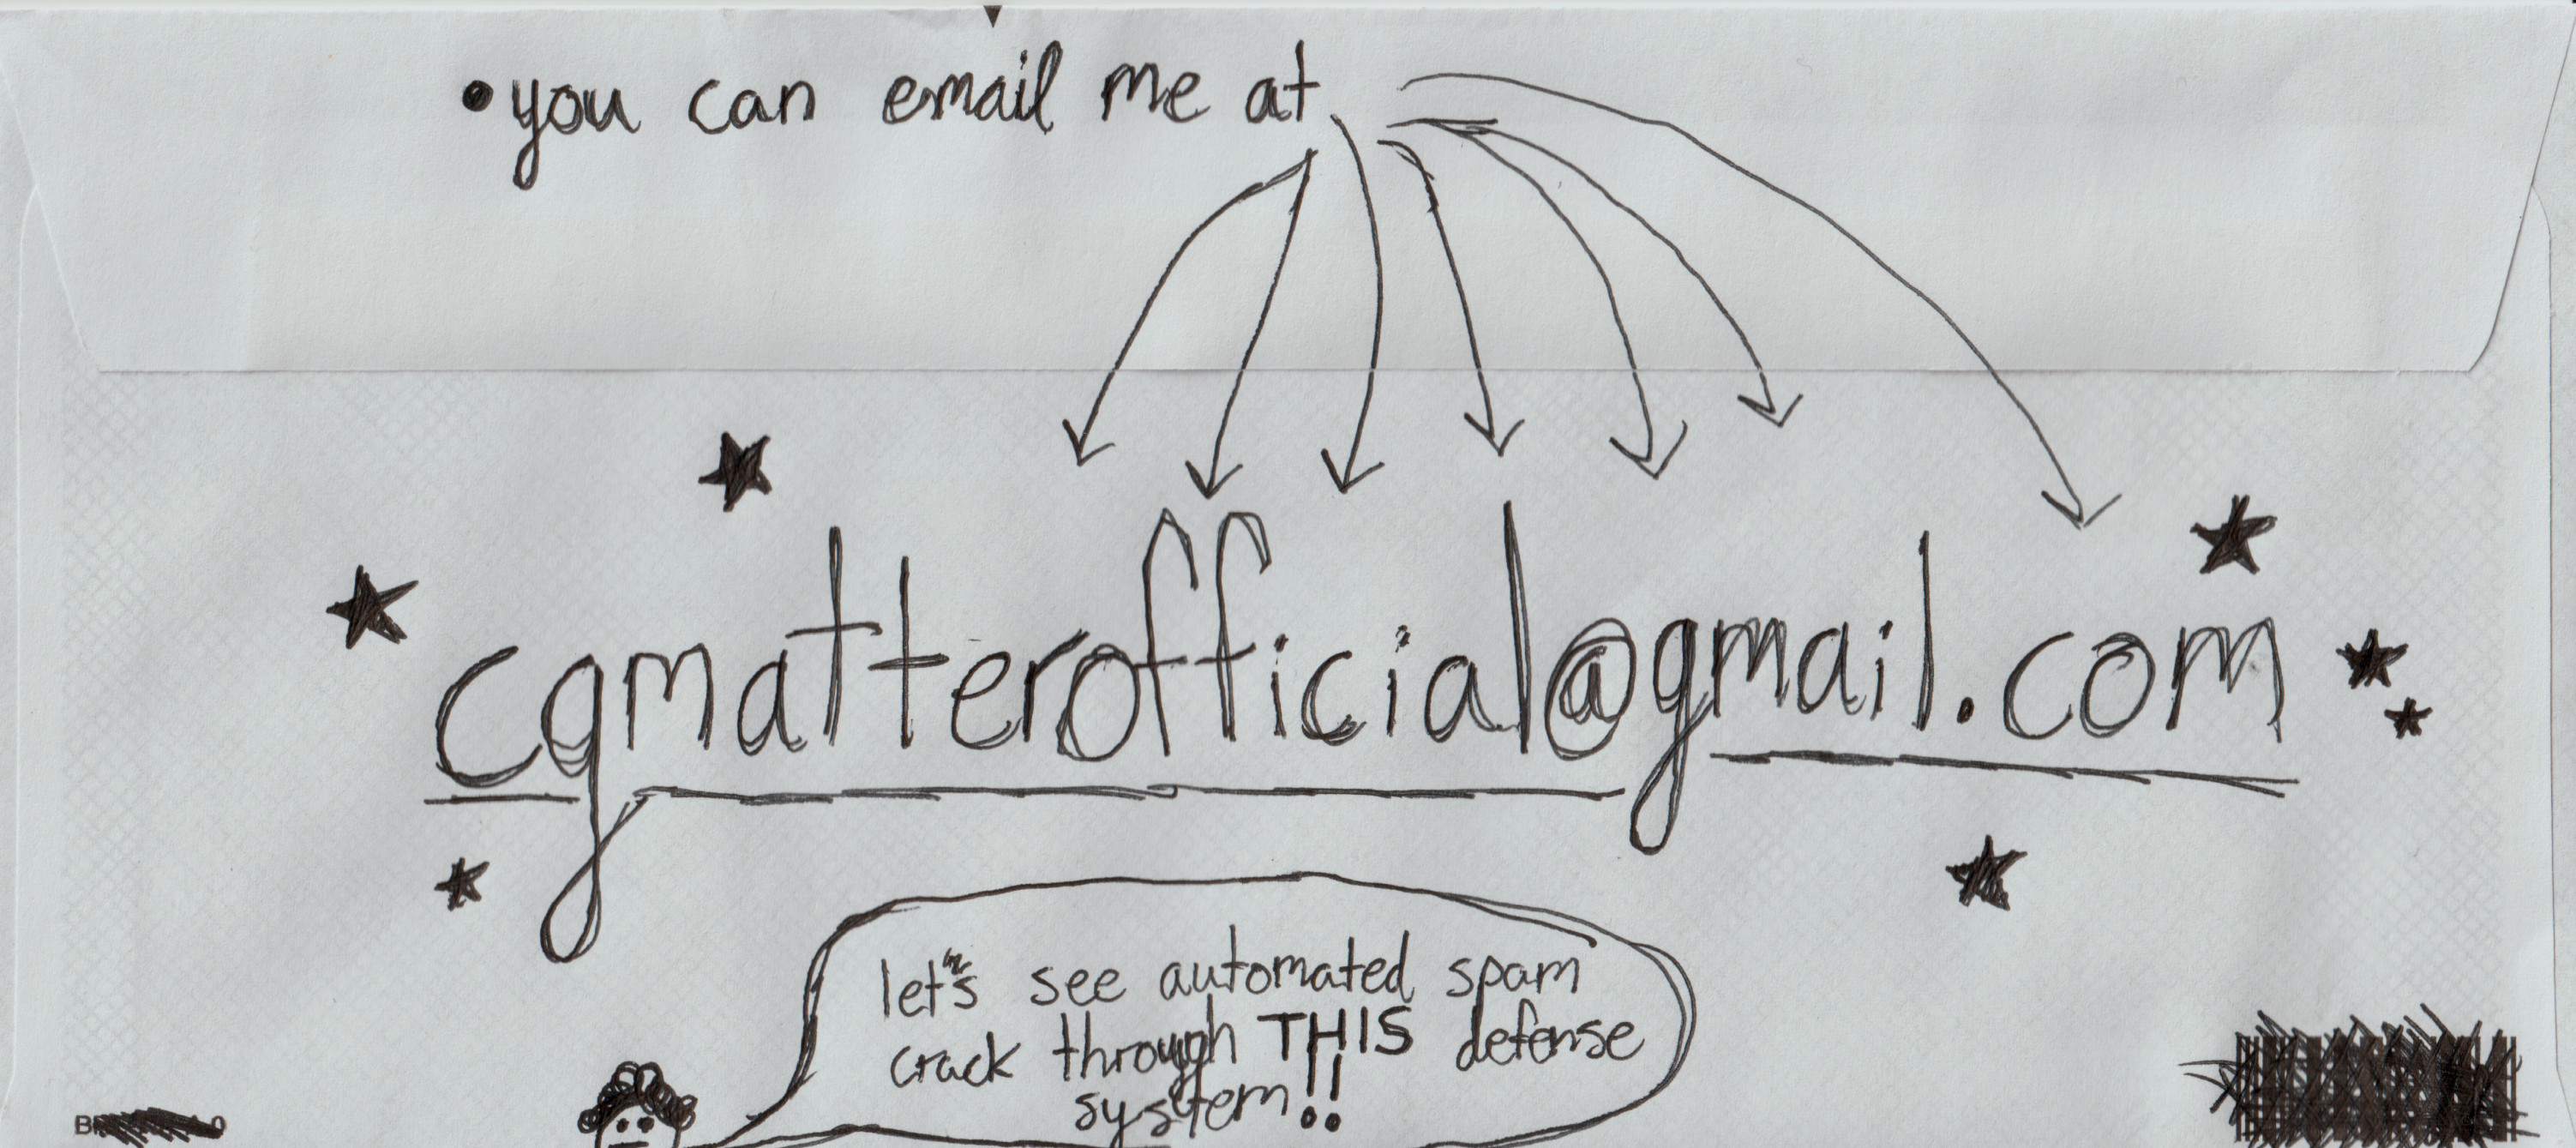 •you can email me at
cgmatterofficial@gmail.com
let's see automated spam
crack through THIS defense
system!!